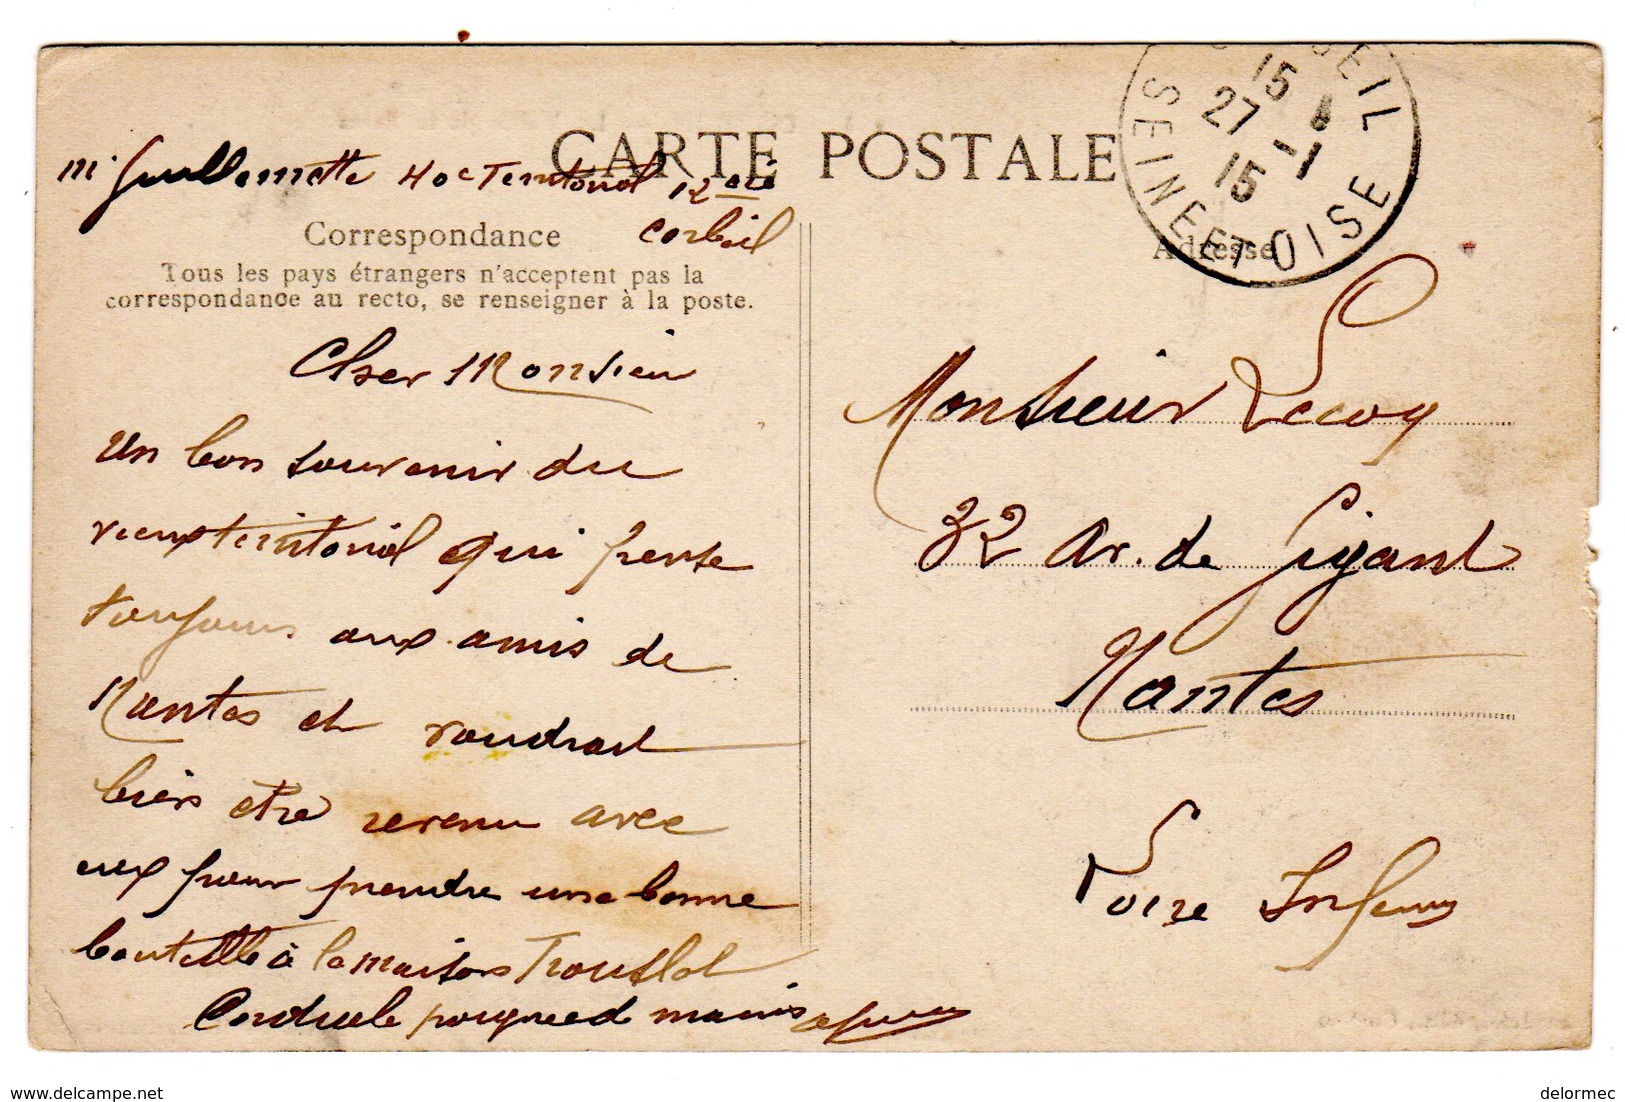 CARTE POSTALE
Mr Guillemette 40e Territorial 12eme
Corbeil
Correspondance
Tous les pays étrangers n'acceptent pas la
correspondance au recto, se renseigner à la poste.
Cher Monsieur
Un bon souvenir du
vieux territorial qui pense
toujours aux amis de
Nantes et voudrait
bien etre revenu avec
eux pour prendre une bonne
bouteille à la maison Trousslot
Cordiale poigneed mains a
SEINE ET OISE
15
27 -1
15
Adresse
Monsieur Lecoq
32 Av. de Gigant
Nantes
Loire Inferieure
delcampe.net
delormec